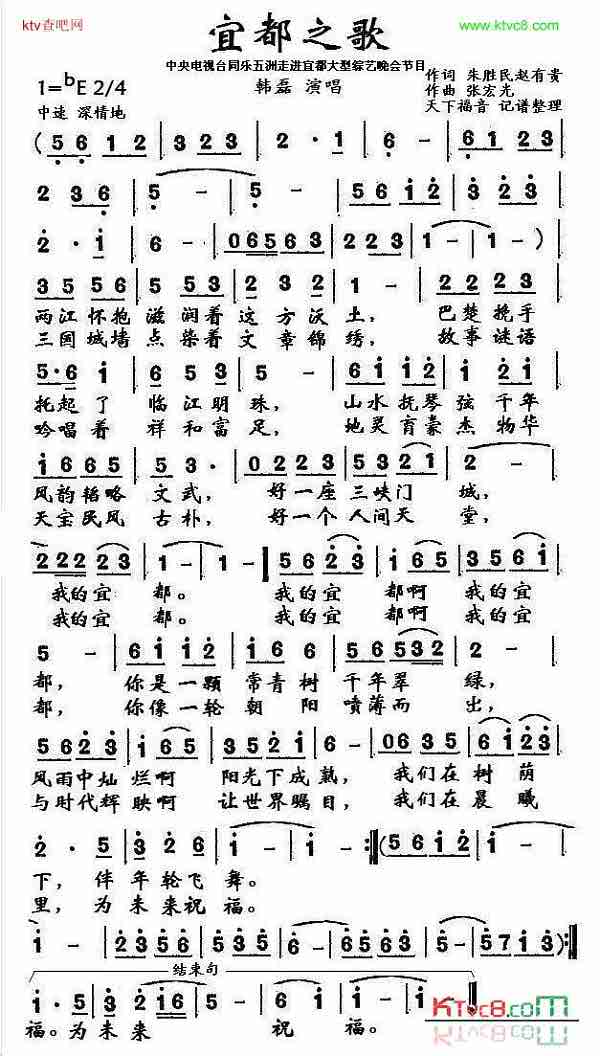 ktv查吧网
www.ktvc8.com
宜都之歌
中央电视台同乐五洲走进宜都大型综艺晚会节目
1=bE 2/4
韩磊 演唱
作词 朱胜民赵有贵
作曲 张宏光
中速 深情地
天下福音 记谱整理
(5 6 1 2 | 3 2 3 5 | 2 · 1 | 6 - | 6 1 2 3 |
2 3 6 | 5 - | 5 - | 5 6 1 2 | 3 2 2 3 |
2 · 1 | 6 - | 0 6 5 6 3 | 2 2 3 | 1 - | 1 - )
3 5 5 6 | 5 3 2 3 | 2 3 2 | 2 - | 2 2 2 3 |
两江怀抱 滋润着这方沃土, 巴楚挽手
三国城墙 点染着文章锦绣, 故事谜语
5 · 6 i | 6 5 2 3 | 5 - | 6 i i 2 | i 2 i |
托起了 临江明珠, 山水抚琴弦千年
吟唱着 祥和富足, 地灵育豪杰物华
i 6 6 5 | 5 3 · | 0 2 2 3 | 5 3 2 1 | 2 - |
风韵韬略文武, 好一座三峡门城,
天宝民风古朴, 好一个人间天堂,
2 2 2 2 3 | 1 - | 1 - | 5 6 2 3 | i - | 3 5 6 i |
我的宜都。 我的宜都啊 我的宜
我的宜都。 我的宜都啊 我的宜
都, 你是一颗常青树千年翠绿,
都, 你像一轮朝阳喷薄而出,
风雨中灿烂啊 阳光下成熟, 我们在树荫
与时代辉映啊 让世界瞩目, 我们在晨曦
下, 伴年轮飞舞。
里, 为未来祝福。
结束句
福。为未来 祝 福。
KTvc8.com